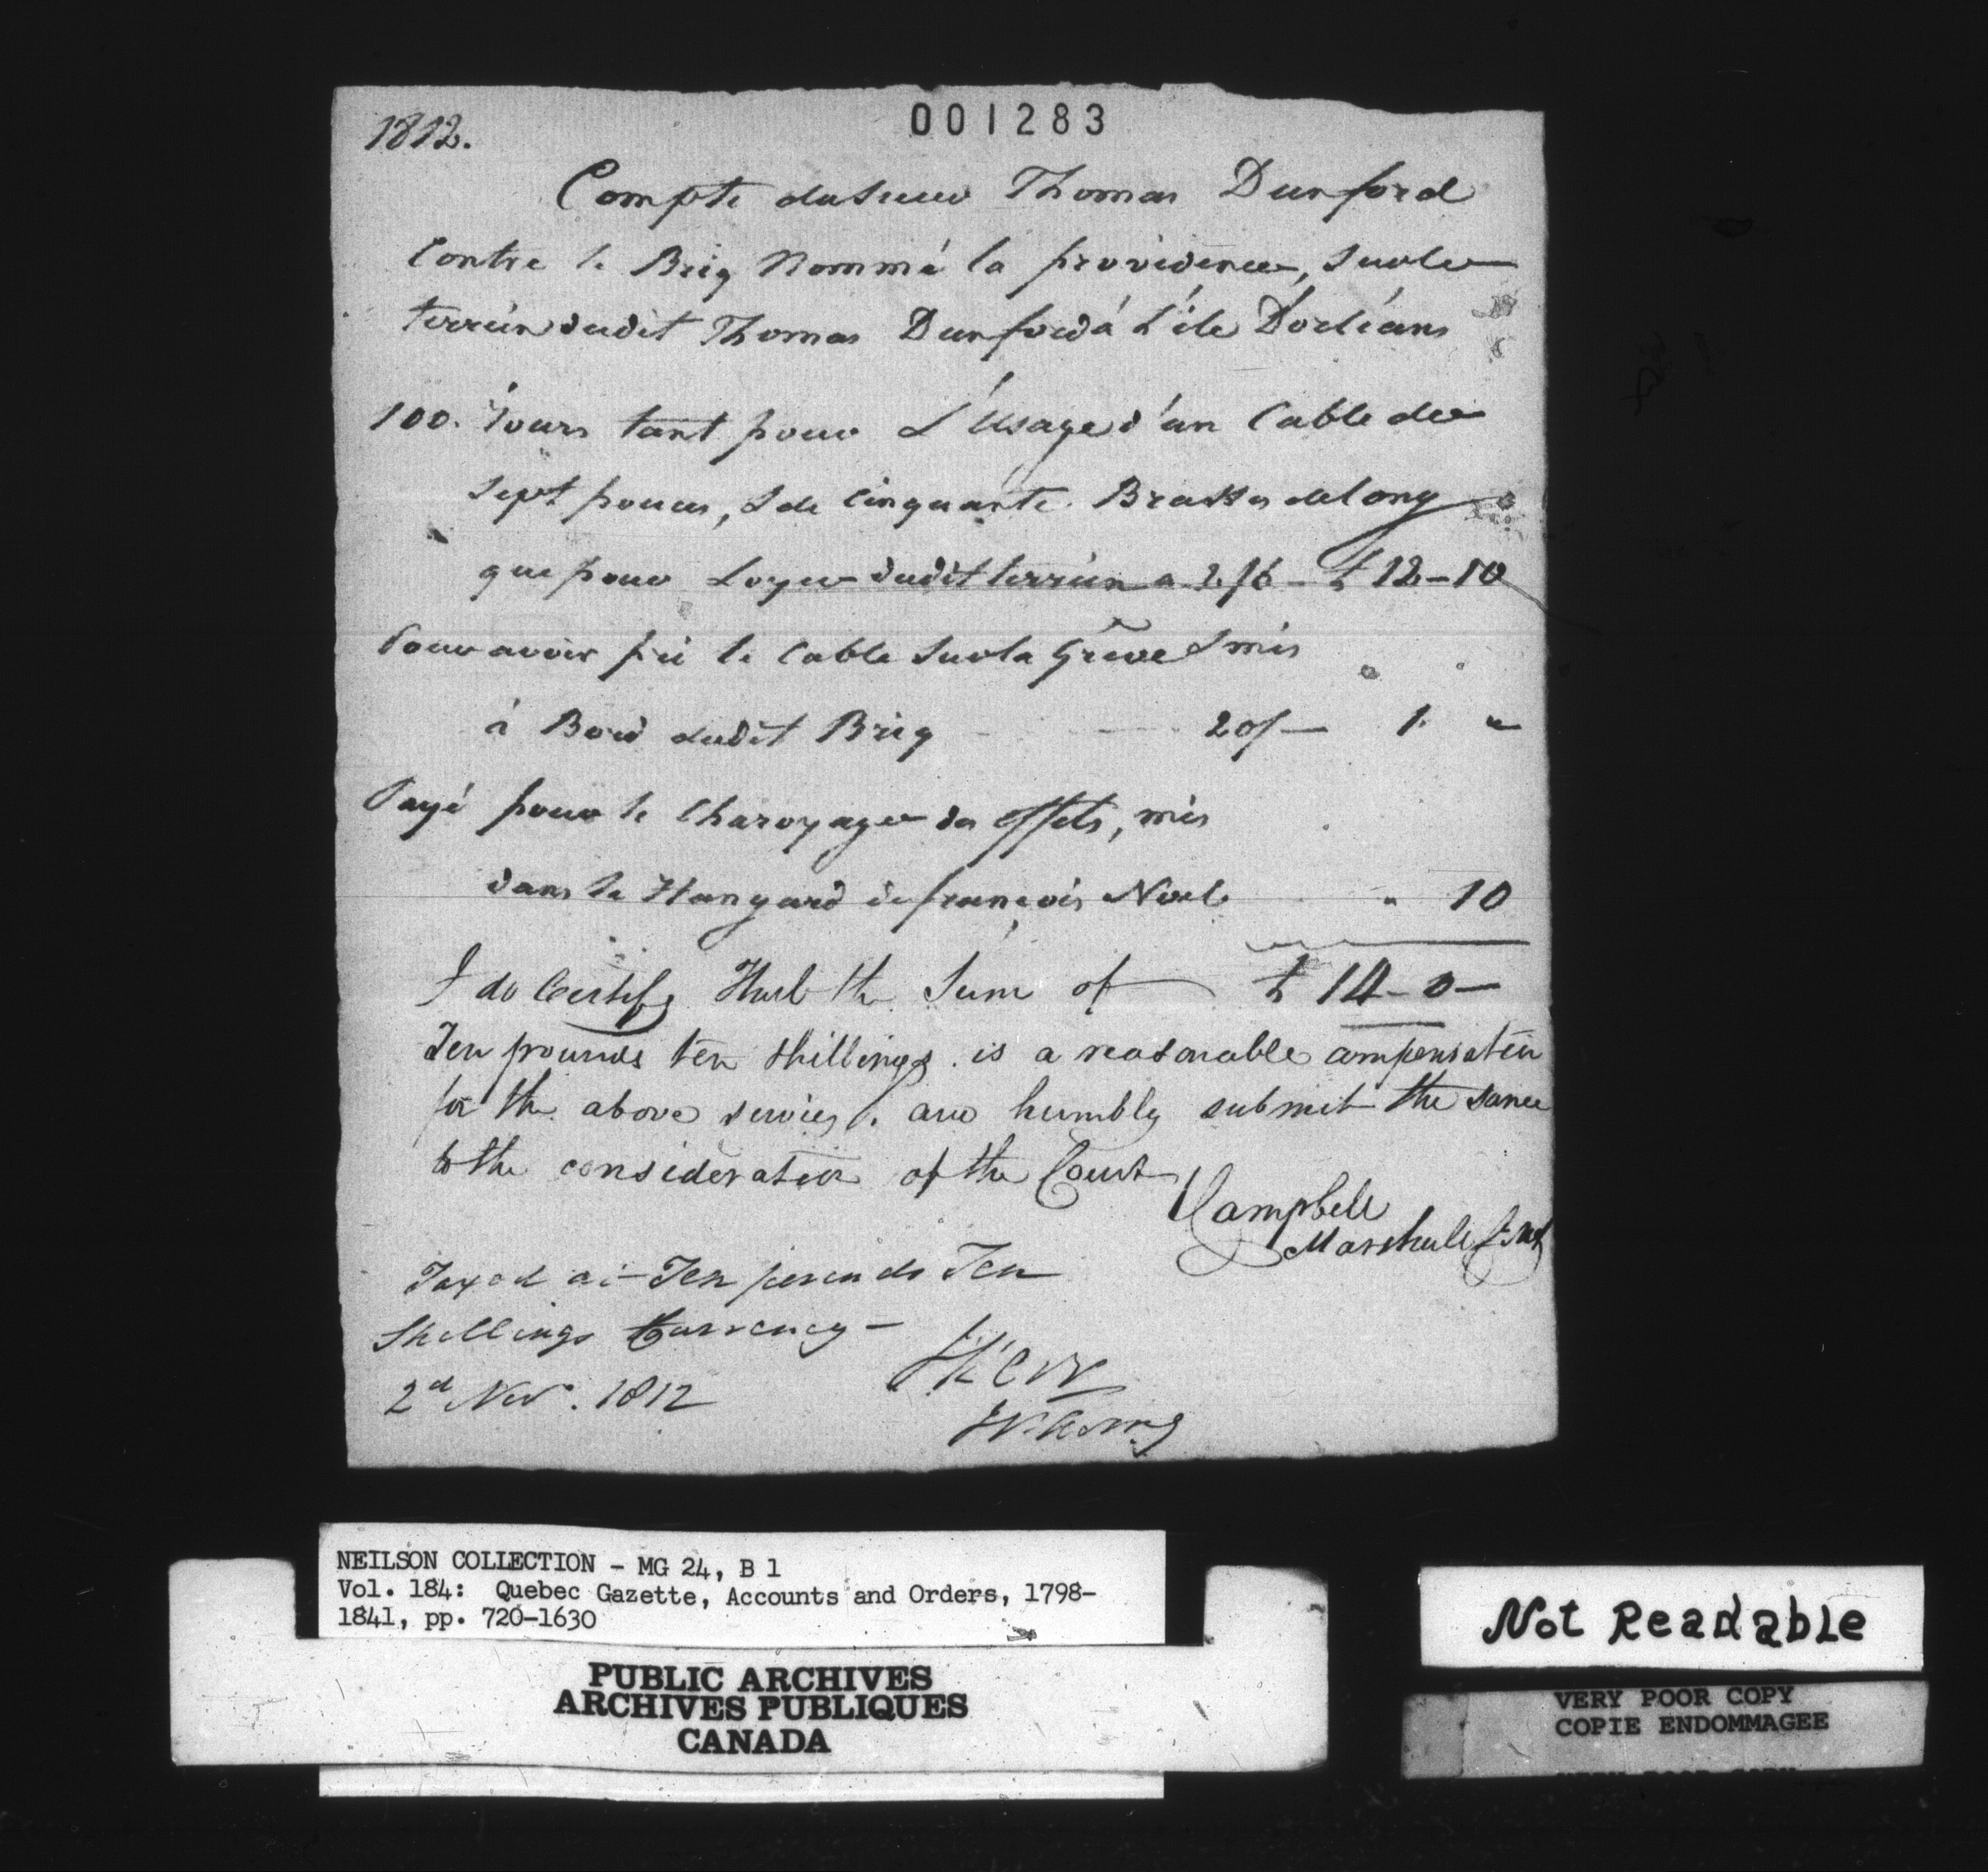 001283
1812.
Compte du Sieur Thomas Dunford
Contre le Brig Nommé la providence, Sur le
terrein dudit Thomas Dunford á L'ile D'orléans
100. Jours tant pour L'Usage d'un Cable de
Sept pouces, & de Cinquante Brasses de long
que pour Loyer dudit terrein a 2/6 - £ 12-10
Pour avoir pri le Cable Sur la Grève & mis
á Bord dudit Brig 20/— 1. "
Payé pour le Charoyage des effets, mis
dans le Hangard de françois Noel " 10
I do Certify that the Sum of £ 14-0-
Ten pounds ten shillings is a reasonable compensation
for the above services, and humbly submit the same
to the consideration of the Court
Campbell
Marshall
Taxed at Ten pounds Ten
Shillings Currency -
2d Novr. 1812
J Kerr
NEILSON COLLECTION - MG 24, B 1
Vol. 184: Quebec Gazette, Accounts and Orders, 1798-
1841, pp. 720-1630
PUBLIC ARCHIVES
ARCHIVES PUBLIQUES
CANADA
Not Readable
VERY POOR COPY
COPIE ENDOMMAGEE